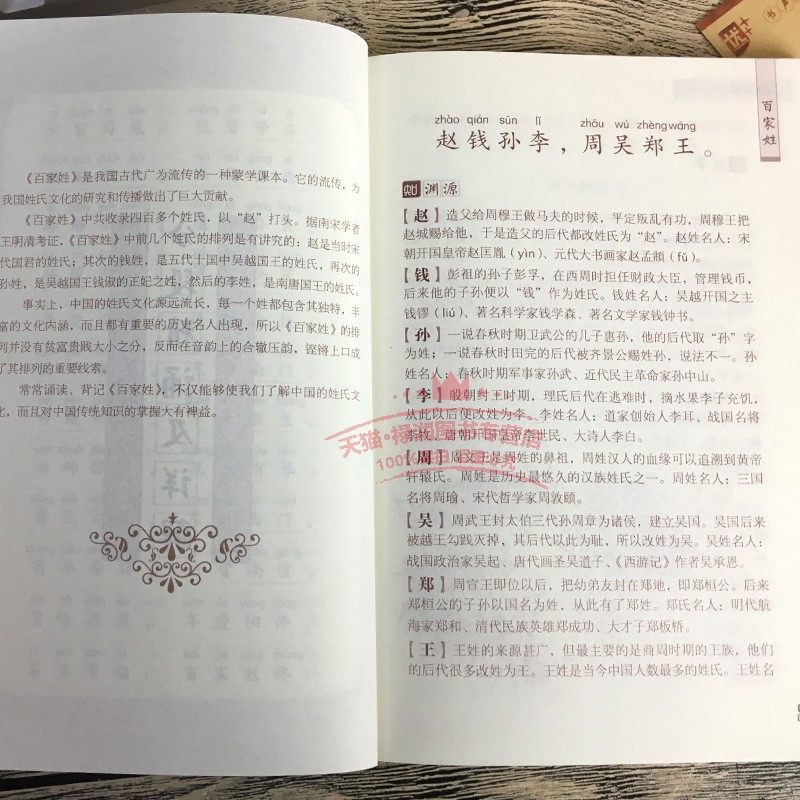 《百家姓》是我国古代广为流传的一种蒙学课本。它的流传，为
我国姓氏文化的研究和传播做出了巨大贡献。
《百家姓》中共收录四百多个姓氏，以“赵”打头。据南宋学者
王明清考证，《百家姓》中前几个姓氏的排列是有讲究的：赵是当时宋
代国君的姓氏；其次的钱姓，是五代十国中吴越国王的姓氏，再次的
孙姓，是吴越国王钱俶的正妃之姓，然后的李姓，是南唐国王的姓氏。
事实上，中国的姓氏文化源远流长，每一个姓都包含其独特，丰
富的文化内涵，而且都有重要的历史名人出现，所以《百家姓》的排
列并没有贫富贵贱大小之分，反而在音韵上的合辙压韵，铿锵上口成
了其排列的重要线索。
常常诵读、背记《百家姓》，不仅能够使我们了解中国的姓氏文
化，而且对中国传统知识的掌握大有裨益。
百家姓
zhào qián sūn lǐ zhōu wú zhèng wáng
赵钱孙李，周吴郑王。
渊源
【赵】造父给周穆王做马夫的时候，平定叛乱有功，周穆王把
赵城赐给他，于是造父的后代都改姓氏为“赵”。赵姓名人：宋
朝开国皇帝赵匡胤（yìn）、元代大书画家赵孟頫（fǔ）。
【钱】彭祖的孙子彭孚，在西周时担任财政大臣，管理钱币，
后来他的子孙便以“钱”作为姓氏。钱姓名人：吴越开国之主
钱镠（liú）、著名科学家钱学森、著名文学家钱钟书。
【孙】一说春秋时期卫武公的儿子惠孙，他的后代取“孙”字
为姓；一说春秋时田完的后代被齐景公赐姓孙，说法不一。孙
姓名人：春秋时期军事家孙武、近代民主革命家孙中山。
【李】殷朝纣王时期，理氏后代在逃难时，摘水果李子充饥，
从此以后便改姓为李。李姓名人：道家创始人李耳、战国名将
李牧、唐朝开国皇帝李世民、大诗人李白。
【周】周文王是周姓的鼻祖，周姓汉人的血缘可以追溯到黄帝
轩辕氏。周姓是历史最悠久的汉族姓氏之一。周姓名人：三国
名将周瑜、宋代哲学家周敦颐。
【吴】周武王封太伯三代孙周章为诸侯，建立吴国。吴国后来
被越王勾践灭掉，其后代以此为耻，所以改姓为吴。吴姓名人：
战国政治家吴起、唐代画圣吴道子、《西游记》作者吴承恩。
【郑】周宣王即位以后，把幼弟友封在郑地，即郑桓公。后来
郑桓公的子孙以国名为姓，从此有了郑姓。郑氏名人：明代航
海家郑和、清代民族英雄郑成功、大才子郑板桥。
【王】王姓的来源甚广，但最主要的是商周时期的王族，他们
的后代很多改姓为王。王姓是当今中国人数最多的姓氏。王姓名